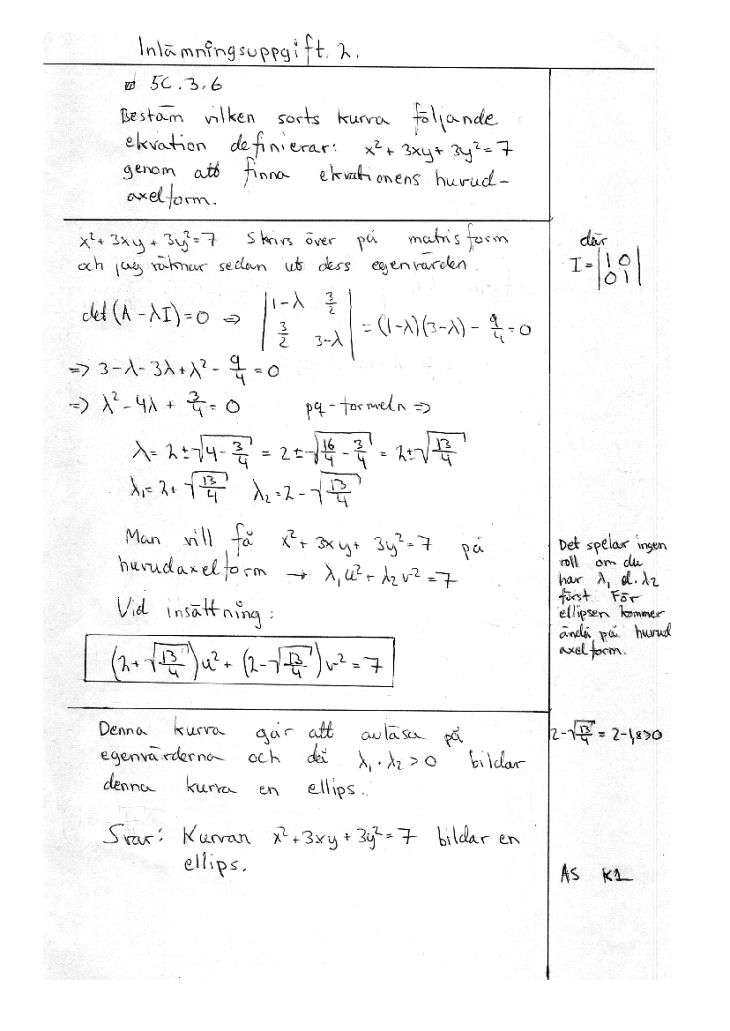 Inlämningsuppgift 2.
5C.3.6
Bestäm vilken sorts kurva följande
ekvation definierar: x² + 3xy + 3y² = 7
genom att finna ekvationens huvud-
axelform.
x² + 3xy + 3y² = 7 skrivs över på matrisform
och jag räknar sedan ut dess egenvärden.
där
I = |1 0|
|0 1|
det(A - λI) = 0 ⇒ |1-λ 3/2| |3/2 3-λ| = (1-λ)(3-λ) - 9/4 = 0
⇒ 3 - λ - 3λ + λ² - 9/4 = 0
⇒ λ² - 4λ + 3/4 = 0 pq-formeln ⇒
λ = 2 ± √(4 - 3/4) = 2 ± √(16/4 - 3/4) = 2 ± √(13/4)
λ₁ = 2 + √(13/4) λ₂ = 2 - √(13/4)
Man vill få x² + 3xy + 3y² = 7 på
huvudaxelform → λ₁u² + λ₂v² = 7
Vid insättning:
(2 + √(13/4))u² + (2 - √(13/4))v² = 7
Det spelar ingen
roll om du
har λ₁ el. λ₂
först. För
ellipsen kommer
ändå på huvud
axelform.
Denna kurva går att avläsa på
egenvärderna och då λ₁ · λ₂ > 0 bildar
denna kurva en ellips.
2 - √(13/4) = 2 - 1,8 > 0
Svar: Kurvan x² + 3xy + 3y² = 7 bildar en
ellips.
AS K1